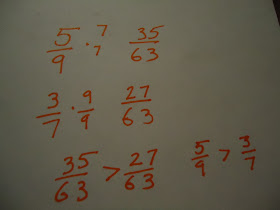 5/9 · 7/7 35/63
3/7 · 9/9 27/63
35/63 > 27/63 5/9 > 3/7